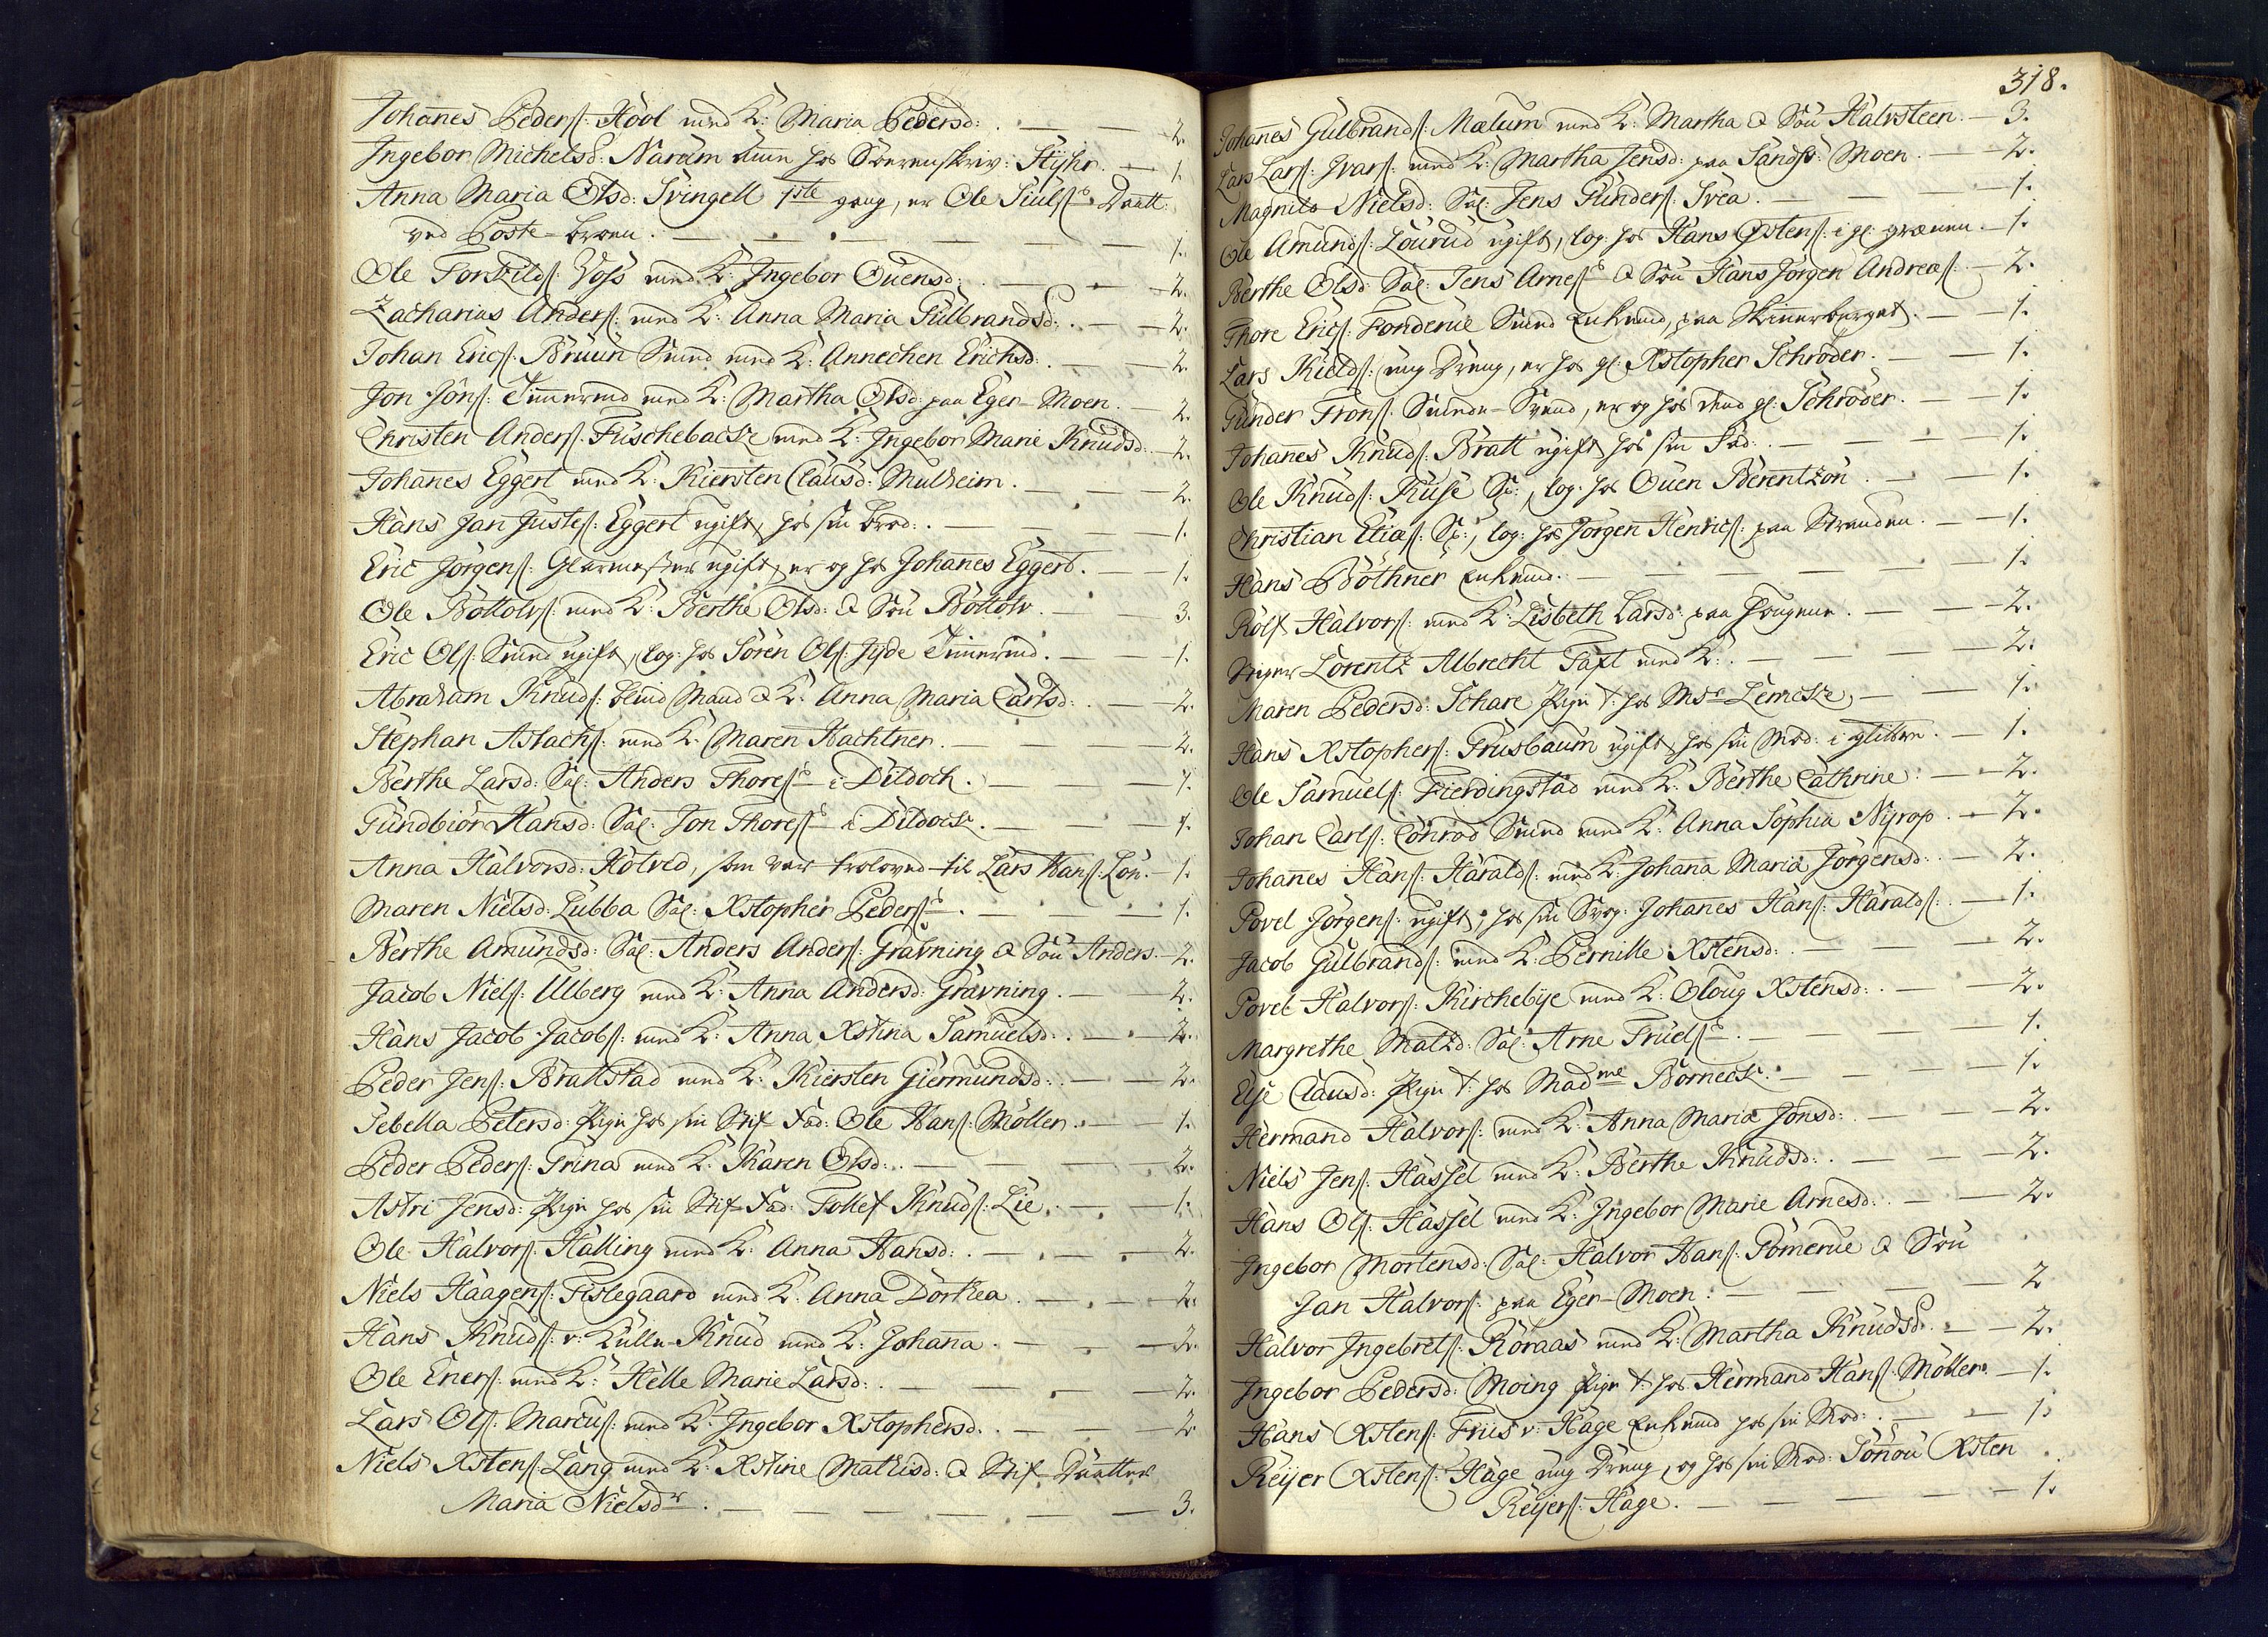 Johanes Peders: Hool med K: Maria Pedersd: . — — 2.
Ingebor Michelsd: Naräm Amme hos Sorenskriv: Stÿhr. — 1.
Anna Maria Olsd: Svingell 1ste gang, er Ole Siuls: Daatt:
ved Poste-broen. — . — . — — 1.
Ole Torkilds: Voss med K: Ingebor Ouensd: . — — 2.
Zacharias Anders: med K: Anna Maria Gulbrandsd: . — — 2.
Johan Erics: Bruun Smed med K: Annechen Erichsd: . — — 2.
Jon Jöns: Timermd med K: Martha Olsd: paa Eger-Moen. — 2.
Christen Anders: Fuscheback med K: Ingebor Marie Knudsd: . — 2.
Johanes Eggert med K: Kiersten Clausd: Mulheim. — — 2.
Hans Jan Justes: Eggert ugift, hos sin brod: . — — 1.
Eric Jörgens: Glarmester ugift, er og hos Johanes Eggert. — 1.
Ole Bottolvs: med K: Berthe Olsd: & Sön Bottolv. — 3.
Eric Ols: Smed ugift, log: hos Sören Ols: Jyde Timermd. — — 1.
Abraham Knuds: blind Mand & K: Anna Maria Carlsd: . — 2.
Stephan Aslachs: med K: Maren Wachtner. — — 2.
Berthe Larsd: Sal: Anders Thores: i Dildoch. — — 1.
Gundbiör Hansd: Sal: Jon Thores: i Dildock. — — 1.
Anna Halvorsd: Holved, som var troloved til Lars Hans: Lön. — 1.
Maren Nielsd: Lubba Sal: Xstopher Peders: . — — 1.
Berthe Amundsd: Sal: Anders Anders: Gravning & Sön Anders. — 2.
Jacob Niels: Ulberg med K: Anna Andersd: Gravning. — — 2.
Hans Jacob Jacobs: med K: Anna Xstina Samuelsd: . — — 2.
Peder Jens: Brattstad med K: Kiersten Giermundsd: . — — 2.
Sebella Petersd: Pige hos sin Stif Fad: Ole Hans: Möller. — 1.
Peder Peders: Grina med K: Karen Olsd: . — — 2.
Astri Jensd: Pige hos sin Stif-Fad: Tollef Knuds: Lie. — — 1.
Ole Halvors: Halling med K: Anna Hansd: . — . — . 2.
Niels Haagens: Fislegaard med K: Anna Dorthea. — — 2.
Hans Knuds: v: Kulle-Knud med K: Johana. — — 2.
Ole Eners: med K: Helle Marie Larsd: . — — 2.
Lars Ols: Marcus: med K: Ingebor Xstophersd: . — — 2
Niels Xstens: Lang med K: Xstine Mathisd: & Stif-Daatter
Maria Nielsdr . — — — 3.
318.
Johanes Gulbrands: Mælum med K: Martha & Sön Halvsteen. — 3.
Lars Lars: Ivars: med K: Martha Jensd: paa Sandsv: Moen. — 2.
Magnild Nielsd: Sal: Jens Gunders: Svea. — — 1.
Ole Amunds: Lourud ugift, log: hos Hans Ostens: i gl: grænen. — 1.
Berthe Olsd: Sal: Jens Arnes: & Sön Hans Jörgen Andreas: — 2.
Thore Erics: Fonderue Smed Enkemd, paa Skinnerberget. — — 1.
Lars Kields: ung Dreng, er hos gl: Xstopher Schröder. — — 1.
Gunder Frons: Smede-Svend, er og hos bmd gl: Schröder. — 1.
Johanes Knuds: Bratt ugift, hos sin Fad: . — — 1.
Ole Knuds: Kuse Sk:, log: hos Ouen Berentzon. — — 1.
Christian Elias: Sk:, log: hos Jörgen Henrics: paa Stranden. — 1.
Hans Böthner Enkemd. — — — 1.
Rolf Halvors: med K: Lisbeth Larsd: paa Haugene. — — 2.
Stiger Lorentz Albrecht Taft med K: . — — 2.
Maren Pedersd: Schare Pige t: hos Msr Lemcke, — — 1.
Hans Xstophers: Grusbaum ugift, hos sin Mod: i glitren. — 1.
Ole Samuels: Fierdingstad med K: Berthe Cathrine: — 2.
Johan Carls: Conrad Smed med K: Anna Sophia Nÿrop. — 2.
Johanes Hans: Haralds: med K: Johana Maria Jörgensd: . — 2.
Povel Jörgens: ugift, hos sin Svog: Johanes Hans: Haralds: . — 1.
Jacob Gulbrands: med K: Pernille Xstensd: . — — 2.
Povel Halvors: Kirchebÿe med K: Oloug Xstensd: . — — 2.
Margrethe Matzd: Sal: Arne Truels: . — — 1.
Else Clausd: Pige t: hos Madme Börneck: — — 1.
Hermand Halvors: med K: Anna Maria Jonsd: . — — 2.
Niels Jens: Hassel med K: Berthe Knudsd: . — — 2.
Hans Ols: Hassel med K: Ingebor Marie Arnesd: . — — 2.
Ingebor Mortensd: Sal: Halvor Hans: Gomerue & Sön
Jan Halvors: paa Eger-Moen: — — — 2
Halvor Ingebrets: Röraas med K: Martha Knudsd: . — — 2.
Ingebor Pedersd: Moing Pige t: hos Hermand Hans: Möller. — 1.
Hans Xstens: Friis v: Hage Enkemd hos sin Mod: . — — 1.
Reijer Xstens: Hage ung Dreng, og hos sin Mod: Sönou Xsten
Reijers: Hage. — — — 1.